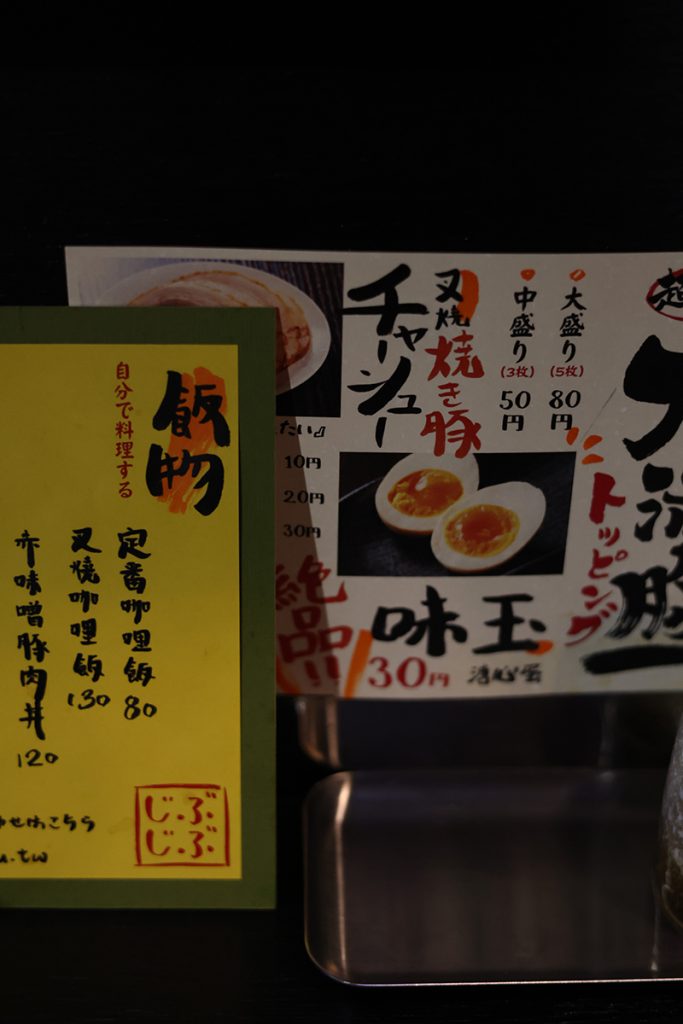 飯物
自分で料理する
定番咖哩飯 80
叉燒咖哩飯 130
赤味噌豚肉丼 120
わせはこちら
u.tw
じ.ぶ.
じ.ぶ.
大盛り(5枚) 80円
中盛り(3枚) 50円
叉焼 焼き豚
チャーシュー
たい』
10円
20円
30円
絶品!!
味玉
30円 溏心蛋
トッピング